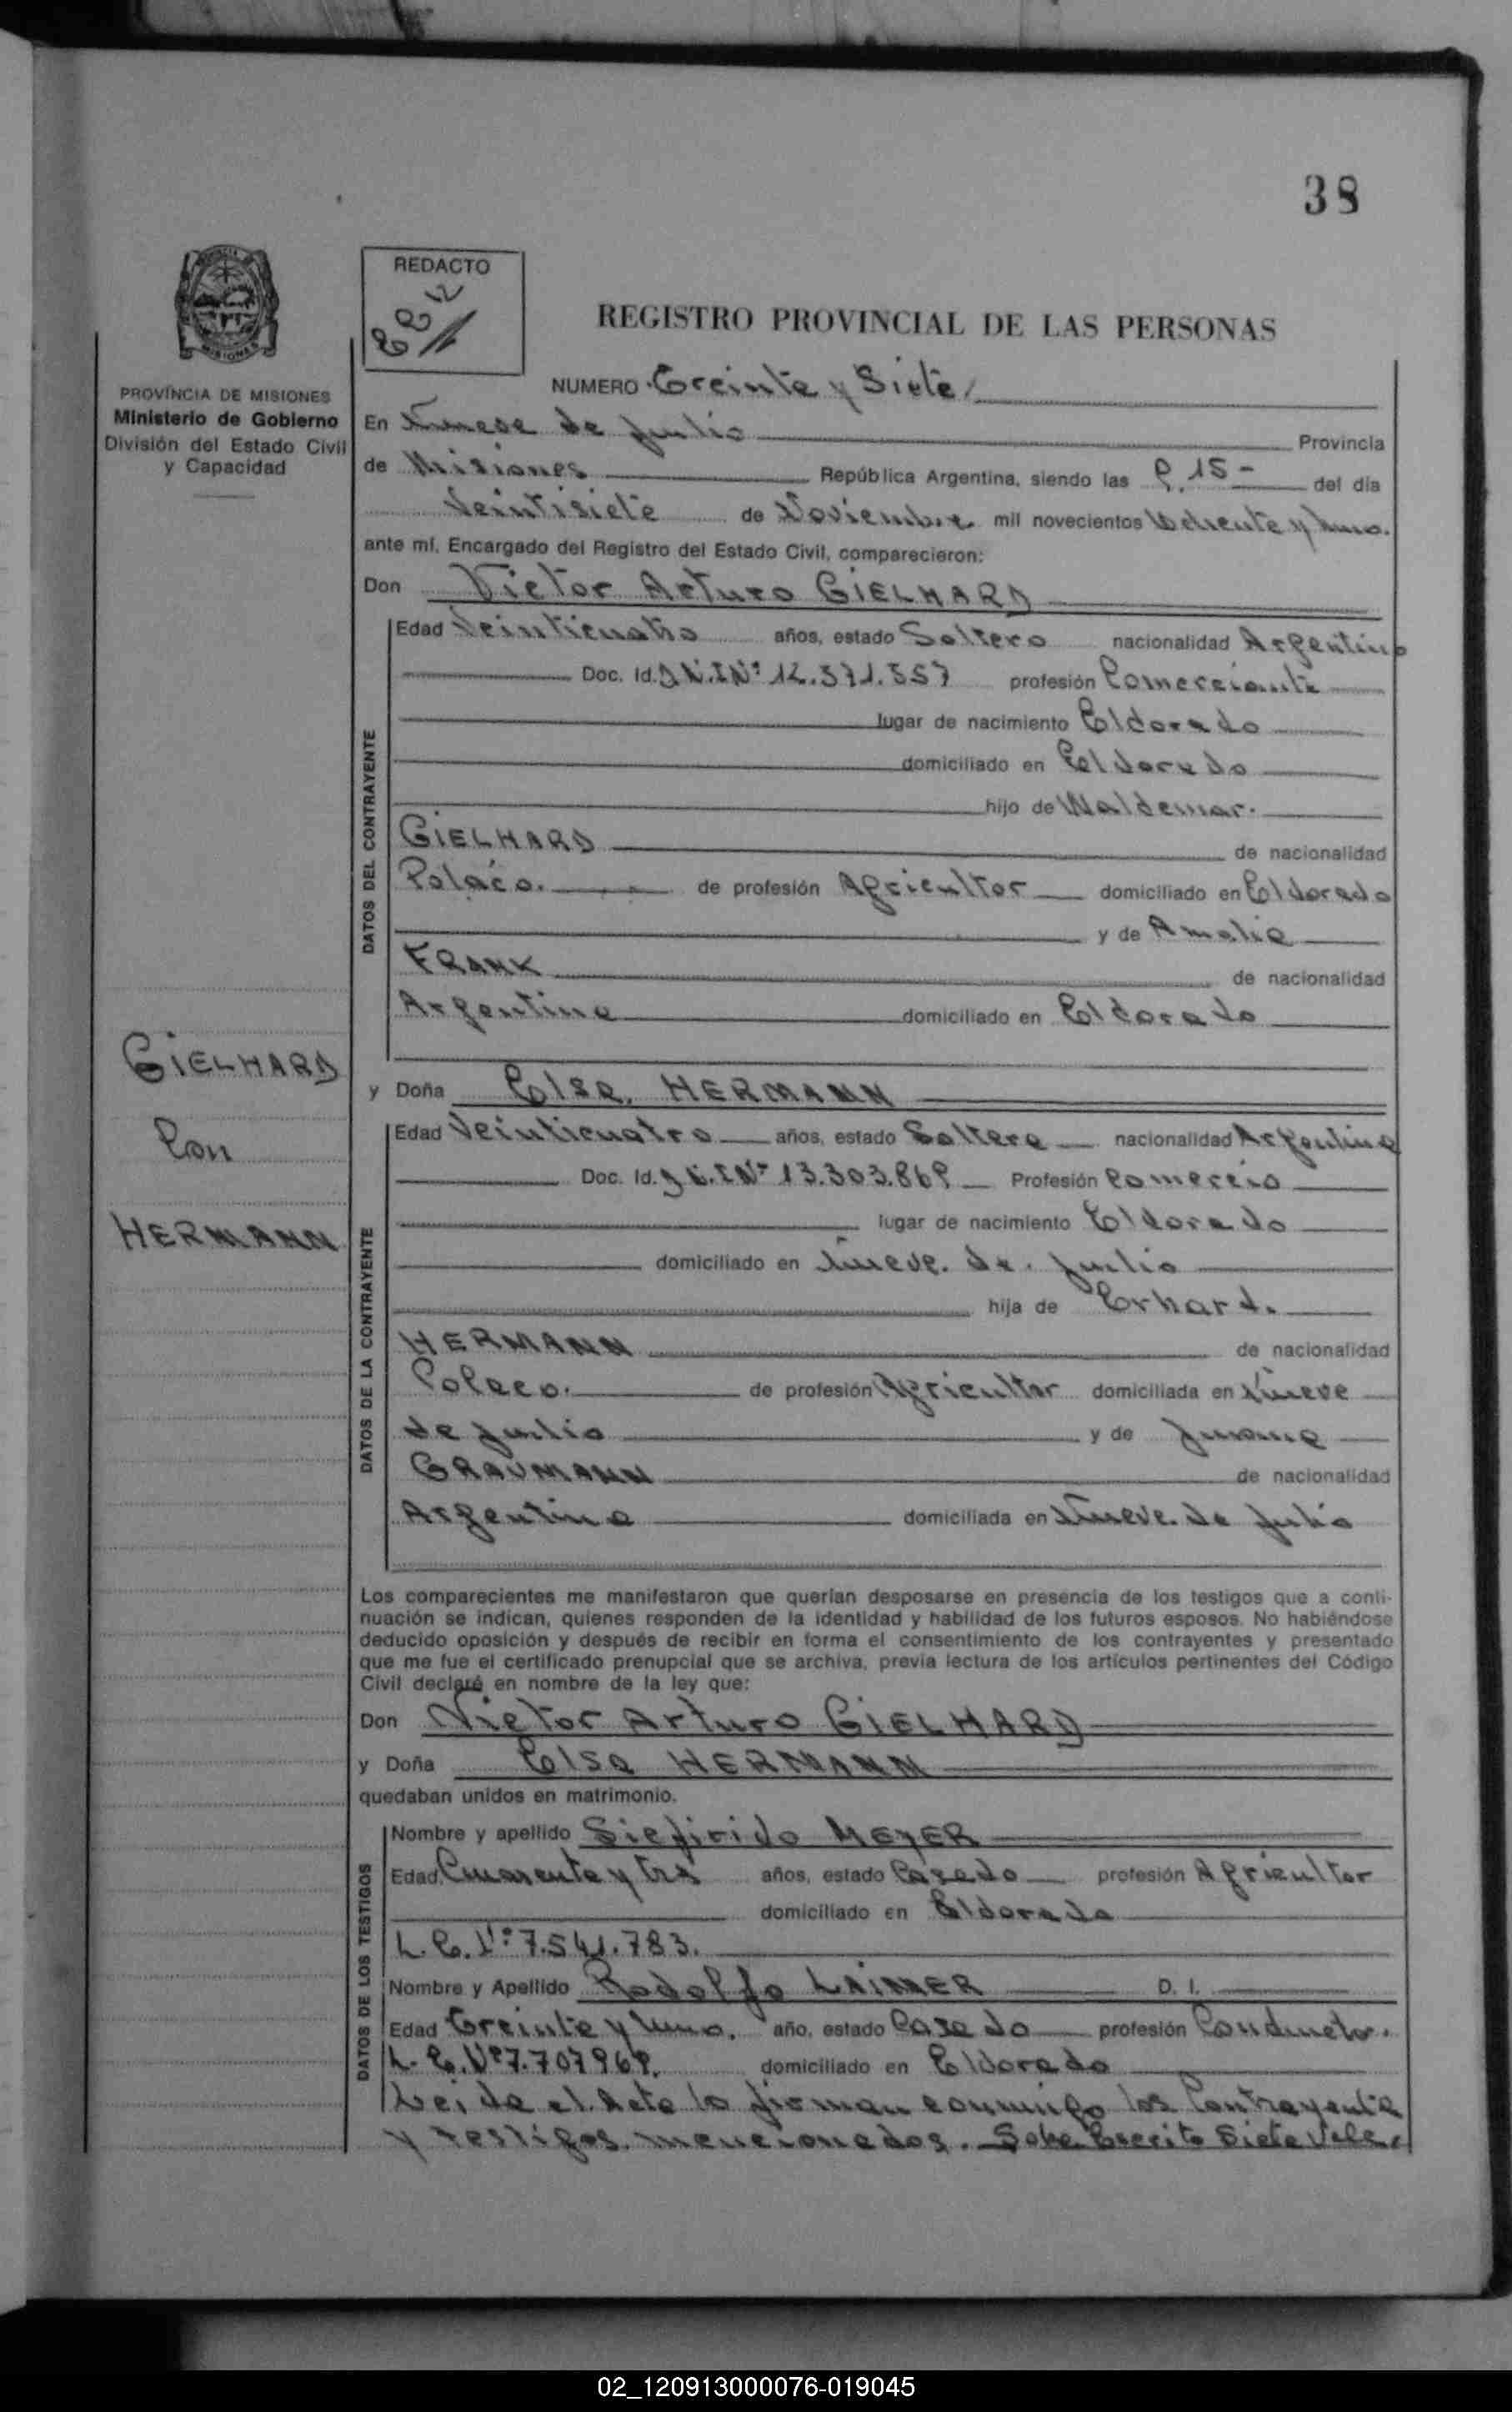 38
REDACTO
REGISTRO PROVINCIAL DE LAS PERSONAS
NUMERO Treinta y Siete
PROVINCIA DE MISIONES
Ministerio de Gobierno
División del Estado Civil
y Capacidad
En Nueve de Julio Provincia
de Misiones República Argentina, siendo las 9.15 - del día
Veintisiete de Noviembre mil novecientos Ochenta y Uno.
ante mí, Encargado del Registro del Estado Civil, comparecieron:
Don Victor Arturo GIELHARD
Edad Veinticuatro años, estado Soltero nacionalidad Argentino
Doc. Id. D.N.I Nº profesión Comerciante
lugar de nacimiento Eldorado
domiciliado en Eldorado
hijo de Waldemar.
GIELHARD de nacionalidad
Polaco. de profesión Agricultor domiciliado en Eldorado
y de Amalia
FRANK de nacionalidad
Argentina domiciliado en Eldorado
DATOS DEL CONTRAYENTE
GIELHARD
Con
HERMANN
y Doña Elsa HERMANN
Edad Veinticuatro años, estado Soltera nacionalidad Argentina
Doc. Id. D.N.I Nº 13.303.869 Profesión Comercio
lugar de nacimiento Eldorado
domiciliado en Nueve de Julio
hija de Erhard.
HERMANN de nacionalidad
Polaco. de profesión Agricultor domiciliada en Nueve
de Julio y de Juana
GRAUMANN de nacionalidad
Argentina domiciliada en Nueve de Julio
DATOS DE LA CONTRAYENTE
Los comparecientes me manifestaron que querían desposarse en presencia de los testigos que a conti-
nuación se indican, quienes responden de la identidad y habilidad de los futuros esposos. No habiéndose
deducido oposición y después de recibir en forma el consentimiento de los contrayentes y presentado
que me fue el certificado prenupcial que se archiva, previa lectura de los artículos pertinentes del Código
Civil declaré en nombre de la ley que:
Don Victor Arturo GIELHARD
y Doña Elsa HERMANN
quedaban unidos en matrimonio.
Nombre y apellido Siefirido MEYER
Edad Cuarenta y tres años, estado Casado profesión Agricultor
domiciliado en Eldorado
L.E. Nº 7.541.783.
Nombre y Apellido Rodolfo LAIMER D. I.
Edad Treinta y Uno. año, estado Casado profesión Conductor.
L.E. Nº 7.707969. domiciliado en Eldorado
DATOS DE LOS TESTIGOS
Leida el Acta la firman conmigo los Contrayentes
y testigos mencionados. Sobre Escrito Siete Vale.
02_120913000076-019045